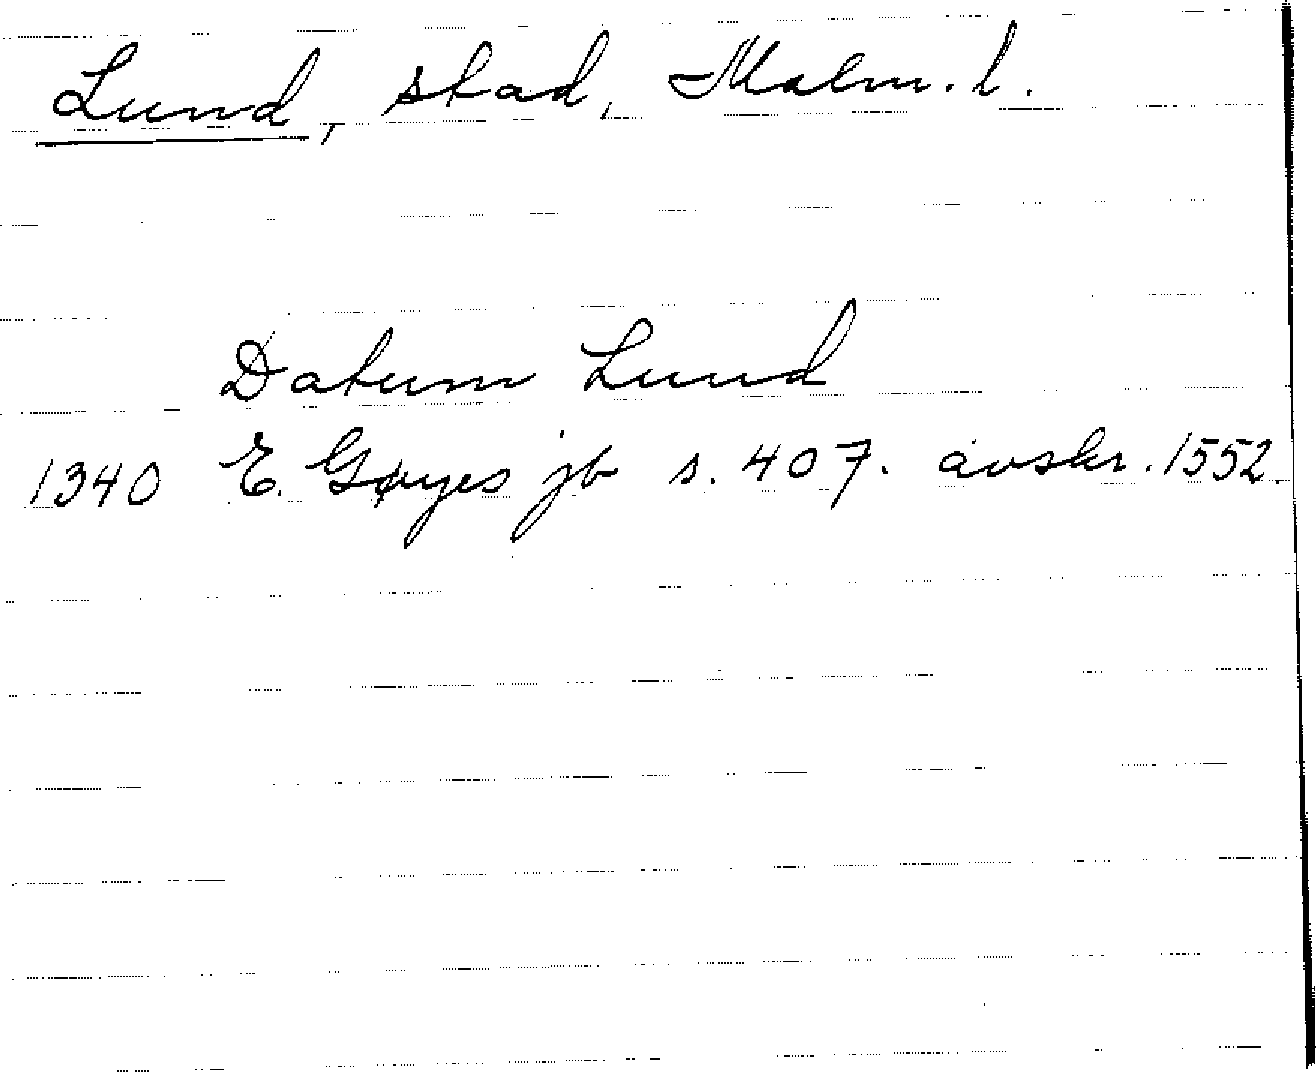 Lund, stad, Malm. l.
Datum Lund
1340 E. Gøyes jb s. 407. avskr. 1552.